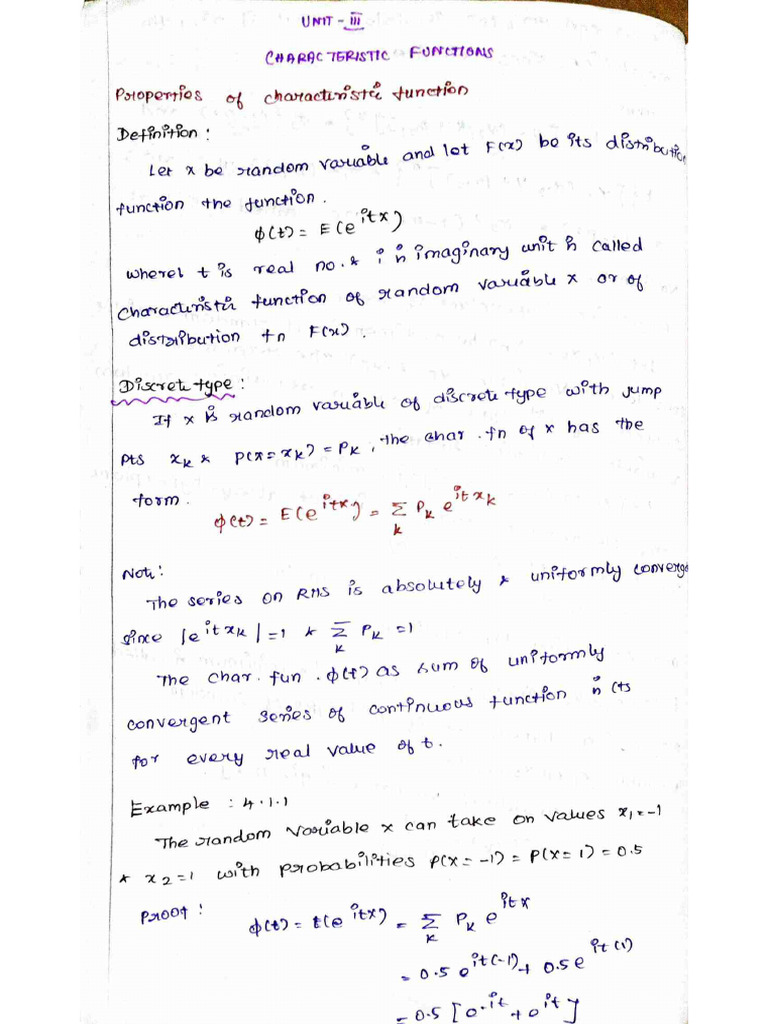 UNIT - III
CHARACTERISTIC FUNCTIONS
Properties of characteristic function
Definition:
Let x be random variable and let F(x) be its distribution
function the function.
φ(t) = E(e^{itx})
where t is real no. & i is imaginary unit is called
characteristic function of random variable x or of
distribution fn F(x).
Discrete type:
If x is random variable of discrete type with jump
pts x_k & p(x = x_k) = P_k, the char. fn of x has the
form.
φ(t) = E(e^{itx}) = Σ_k P_k e^{itx_k}
Note:
The series on RHS is absolutely & uniformly converge
since |e^{itx_k}| = 1 & Σ_k P_k = 1
The char. fun. φ(t) as sum of uniformly
convergent series of continuous function is cts
for every real value of t.
Example : 4.1.1
The random variable x can take on values x_1 = -1
& x_2 = 1 with probabilities p(x = -1) = p(x = 1) = 0.5
Proof:
φ(t) = E(e^{itx}) = Σ_k P_k e^{itx}
= 0.5 e^{it(-1)} + 0.5 e^{it(1)}
= 0.5 [e^{-it} + e^{it}]